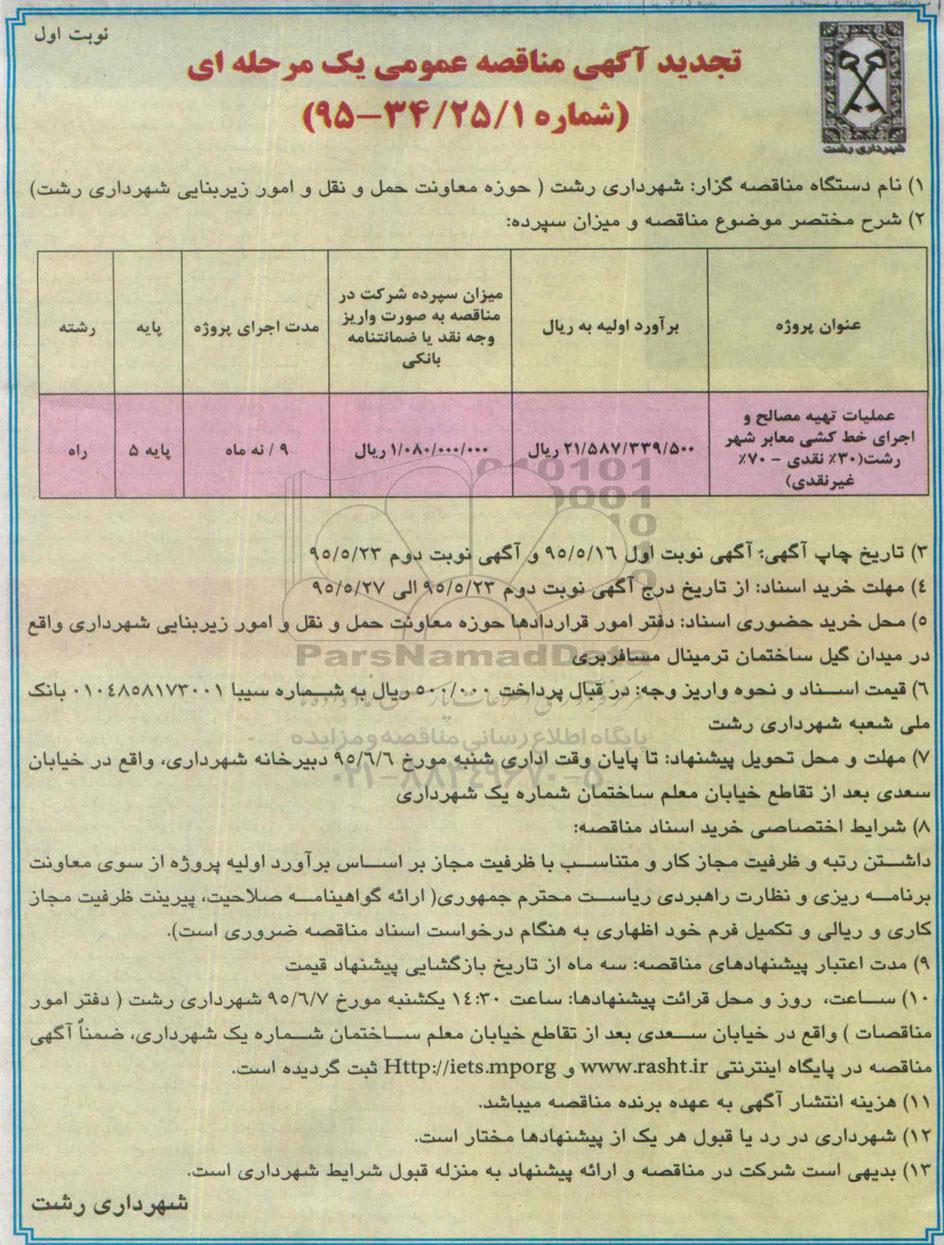 نوبت اول
تجدید آگهی مناقصه عمومی یک مرحله ای
(شماره ۳۴/۲۵/۱-۹۵)
شهرداری رشت
۱) نام دستگاه مناقصه گزار: شهرداری رشت ( حوزه معاونت حمل و نقل و امور زیربنایی شهرداری رشت)
۲) شرح مختصر موضوع مناقصه و میزان سپرده:
عنوان پروژه
برآورد اولیه به ریال
میزان سپرده شرکت در
مناقصه به صورت واریز
وجه نقد یا ضمانتنامه
بانکی
مدت اجرای پروژه
پایه
رشته
عملیات تهیه مصالح و
اجرای خط کشی معابر شهر
رشت(۳۰٪ نقدی - ۷۰٪
غیرنقدی)
۲۱/۵۸۷/۳۳۹/۵۰۰ ریال
۱/۰۸۰/۰۰۰/۰۰۰ ریال
۹ / نه ماه
پایه ۵
راه
۳) تاریخ چاپ آگهی: آگهی نوبت اول ۹۵/۵/۱۶ و آگهی نوبت دوم ۹۵/۵/۲۳
۴) مهلت خرید اسناد: از تاریخ درج آگهی نوبت دوم ۹۵/۵/۲۳ الی ۹۵/۵/۲۷
۵) محل خرید حضوری اسناد: دفتر امور قراردادها حوزه معاونت حمل و نقل و امور زیربنایی شهرداری واقع
در میدان گیل ساختمان ترمینال مسافربری
ParsNamadData
۶) قیمت اسناد و نحوه واریز وجه: در قبال پرداخت ۵۰۰/۰۰۰ ریال به شماره سیبا ۰۱۰۴۸۵۸۱۷۳۰۰۱ بانک
ملی شعبه شهرداری رشت
پایگاه اطلاع رسانی مناقصه و مزایده
۷) مهلت و محل تحویل پیشنهاد: تا پایان وقت اداری شنبه مورخ ۹۵/۶/۶ دبیرخانه شهرداری، واقع در خیابان
۰۲۱-۸۸۳۴۹۶۷۰-۵
سعدی بعد از تقاطع خیابان معلم ساختمان شماره یک شهرداری
۸) شرایط اختصاصی خرید اسناد مناقصه:
داشتن رتبه و ظرفیت مجاز کار و متناسب با ظرفیت مجاز بر اساس برآورد اولیه پروژه از سوی معاونت
برنامه ریزی و نظارت راهبردی ریاست محترم جمهوری( ارائه گواهینامه صلاحیت، پیرینت ظرفیت مجاز
کاری و ریالی و تکمیل فرم خود اظهاری به هنگام درخواست اسناد مناقصه ضروری است).
۹) مدت اعتبار پیشنهادهای مناقصه: سه ماه از تاریخ بازگشایی پیشنهاد قیمت
۱۰) ساعت، روز و محل قرائت پیشنهادها: ساعت ۱۴:۳۰ یکشنبه مورخ ۹۵/۶/۷ شهرداری رشت ( دفتر امور
مناقصات ) واقع در خیابان سعدی بعد از تقاطع خیابان معلم ساختمان شماره یک شهرداری، ضمناً آگهی
مناقصه در پایگاه اینترنتی www.rasht.ir و Http://iets.mporg ثبت گردیده است.
۱۱) هزینه انتشار آگهی به عهده برنده مناقصه میباشد.
۱۲) شهرداری در رد یا قبول هر یک از پیشنهادها مختار است.
۱۳) بدیهی است شرکت در مناقصه و ارائه پیشنهاد به منزله قبول شرایط شهرداری است.
شهرداری رشت